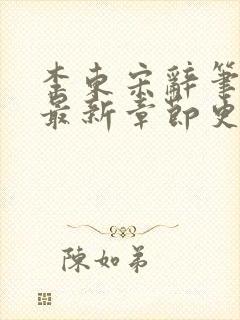 李東宋辭筆
最新章節史
陳如弟